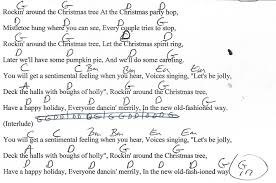 G D D
Rockin' around the Christmas tree At the Christmas party hop,
D D G
Mistletoe hung where you can see, Every couple tries to stop,
G D D
Rockin' around the Christmas tree, Let the Christmas spirit ring,
D D G
Later we'll have some pumpkin pie, And we'll do some caroling.
C C Bm Bm Em Em
You will get a sentimental feeling when you hear, Voices singing, "Let's be jolly,
A A D D
Deck the halls with boughs of holly", Rockin' around the Christmas tree,
D D D G
Have a happy holiday, Everyone dancin' merrily, In the new old-fashioned way.
(Interlude)
C C Bm Bm Em Em
You will get a sentimental feeling when you hear, Voices singing, "Let's be jolly,
Deck the halls with boughs of holly", Rockin' around the Christmas tree,
D D D D G
Have a happy holiday, Everyone dancin' merrily, In the new old-fash-ioned way